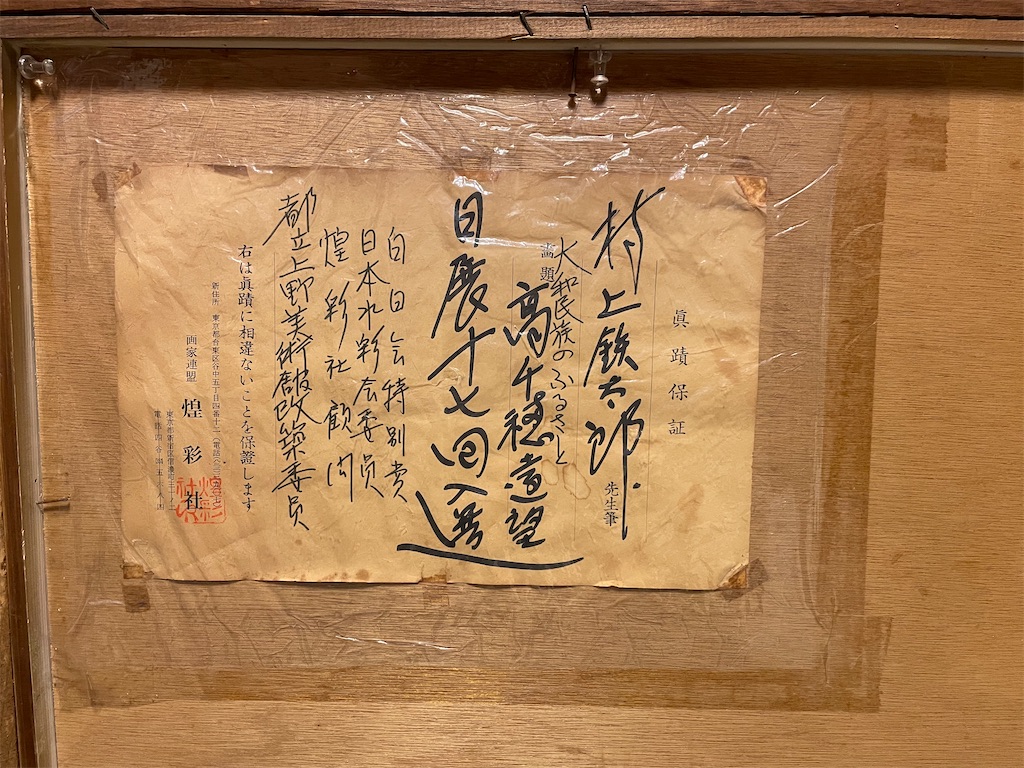 眞蹟保証
村上鉄太郎 先生筆
畵題
大和民族のふるさと
高千穂遠望
日展十七回入選
白日会特別賞
日本水彩会委員
煌彩社顧問
都立上野美術館改築委員
右は眞蹟に相違ないことを保證します
新住所 東京都台東区谷中五丁目四番十二
画家連盟 煌彩社